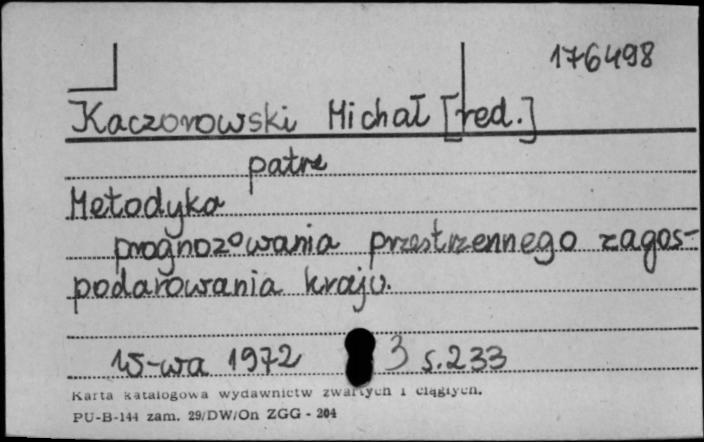 176498
Kaczorowski Michał [red.]
patrz
Metodyka
prognozowania przestrzennego zagos-
podarowania kraju.
W-wa 1972 3 s.233
Karta katalogowa wydawnictw zwartych i ciągłych.
PU-B-144 zam. 29/DW/On ZGG - 204